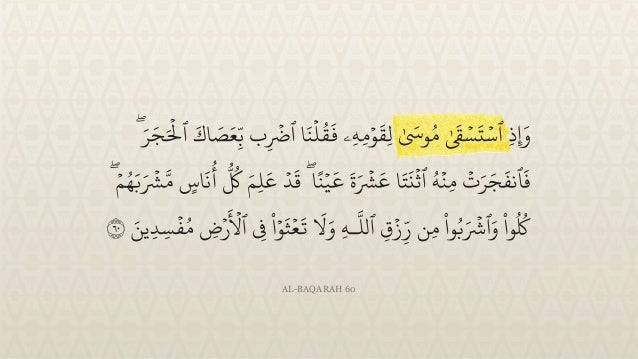 وَإِذِ ٱسْتَسْقَىٰ مُوسَىٰ لِقَوْمِهِۦ فَقُلْنَا ٱضْرِب بِّعَصَاكَ ٱلْحَجَرَ ۖ
فَٱنفَجَرَتْ مِنْهُ ٱثْنَتَا عَشْرَةَ عَيْنًا ۖ قَدْ عَلِمَ كُلُّ أُنَاسٍ مَّشْرَبَهُمْ ۖ
كُلُوا۟ وَٱشْرَبُوا۟ مِن رِّزْقِ ٱللَّهِ وَلَا تَعْثَوْا۟ فِى ٱلْأَرْضِ مُفْسِدِينَ ٦٠
AL-BAQARAH 60